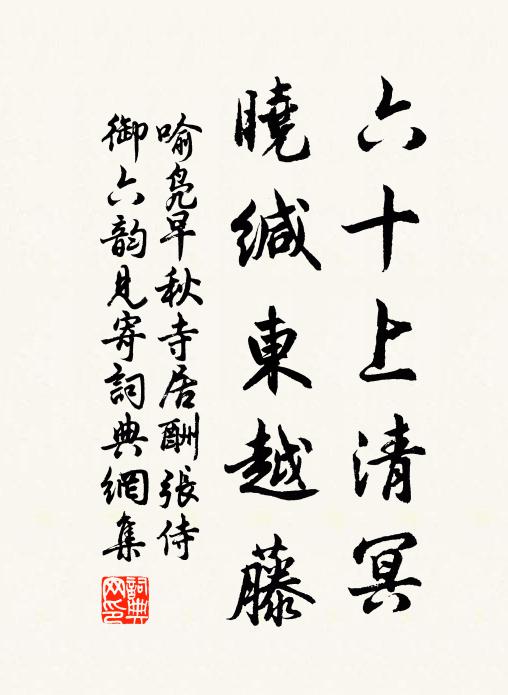 六十上清冥
曉緘東越藤
喻凫早秋寺居酬張侍
御六韵見寄詞典網集
詞典
网印